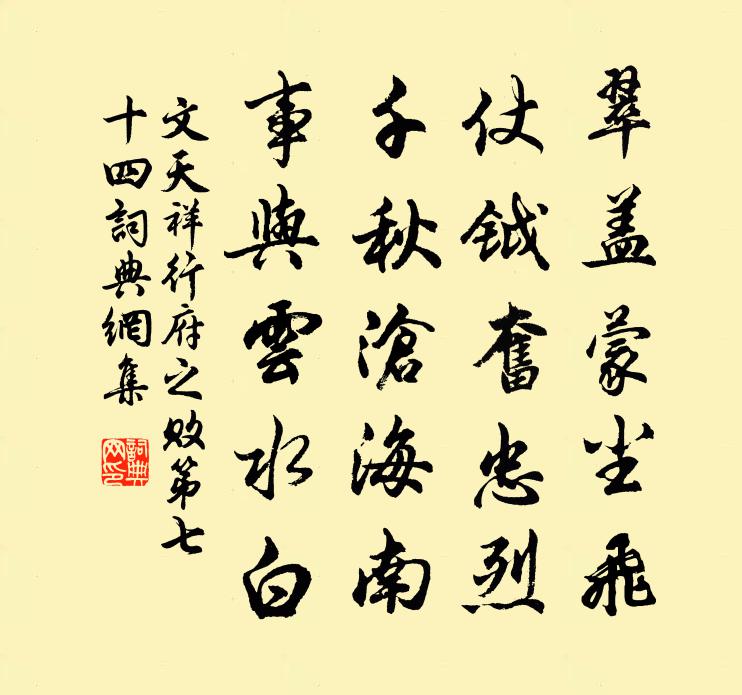 翠盖蒙尘飛
仗鉞奮忠烈
千秋滄海南
事與雲水白
文天祥行府之敗第七
十四詞典網集
詞典網印